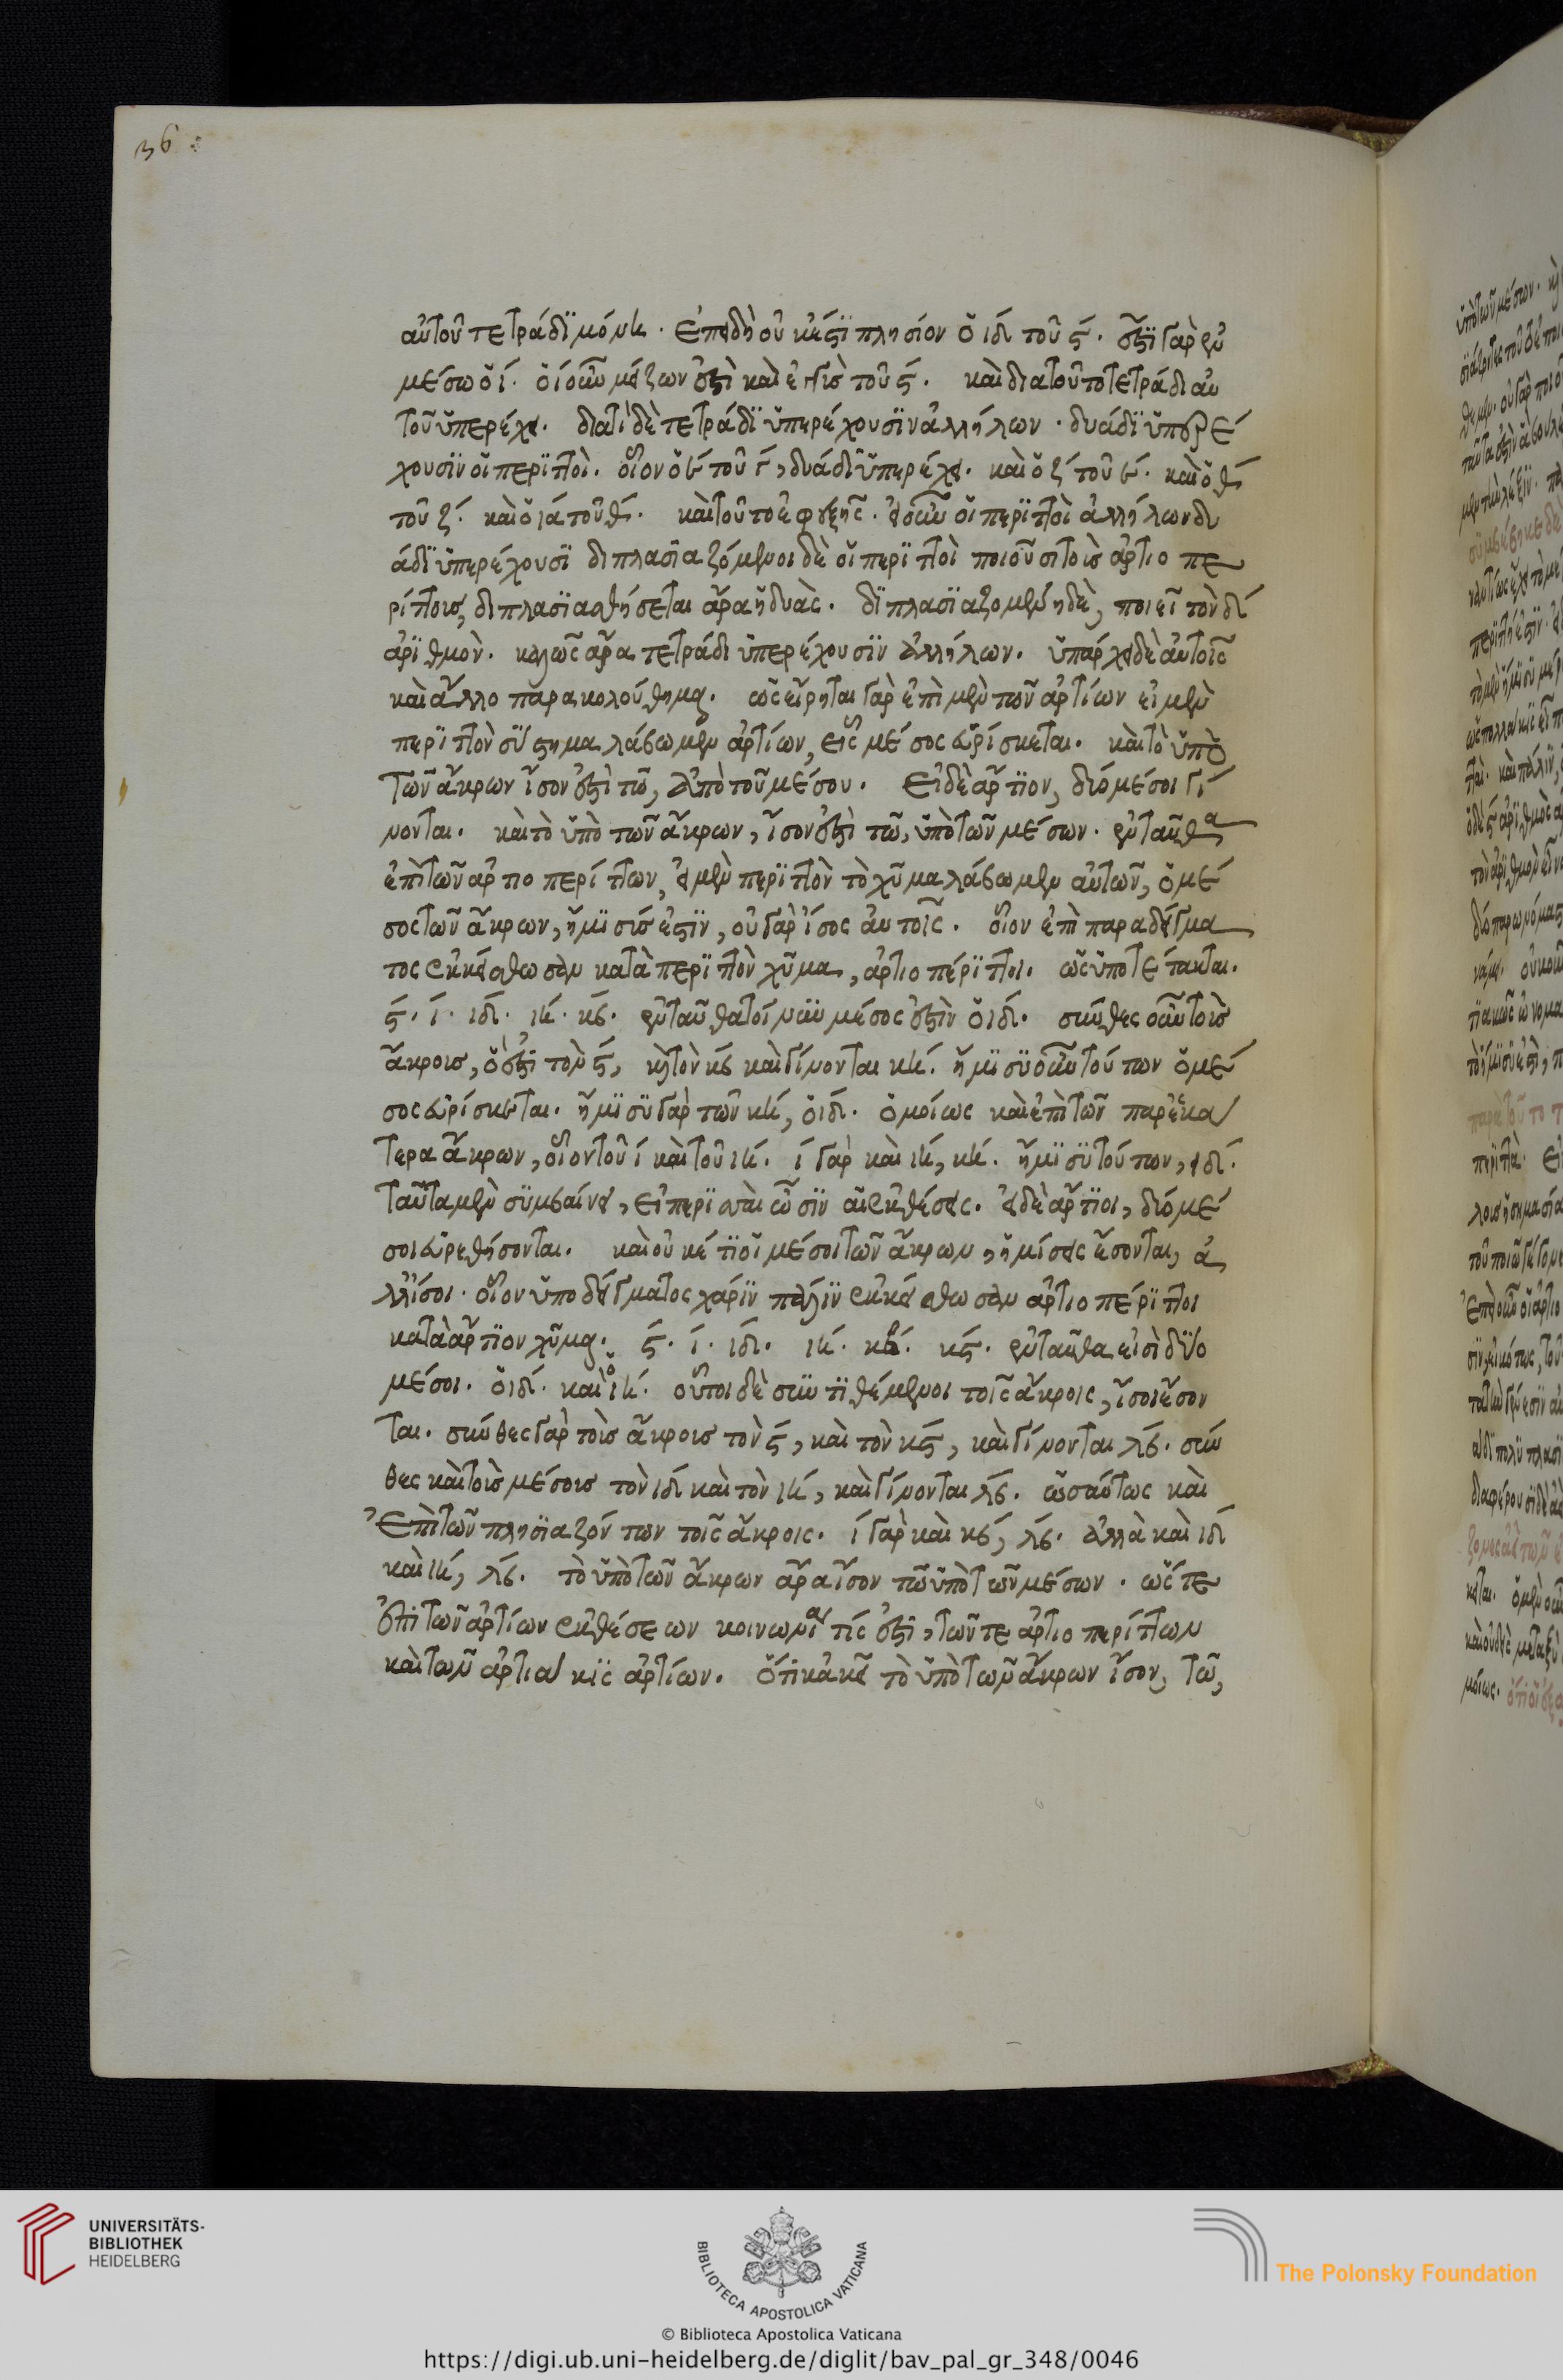 36
αὐτοῦ τετράδι μόνῃ. ἐπειδὴ οὐκ ἔστι πλησίον ὁ ιδ τοῦ ϛ. ἔστι γὰρ ἐν
μέσῳ ὁ ι. ὁ ι οὖν μείζων ἐστὶ καὶ ἐγγὺς τοῦ ϛ. καὶ διὰ τοῦτο τετράδι αὐ
τοῦ ὑπερέχει. διατί δὲ τετράδι ὑπερέχουσιν ἀλλήλων. δυάδι ὑπερέ
χουσιν οἱ περιττοὶ. οἷον ὁ ε τοῦ γ, δυάδι ὑπερέχει. καὶ ὁ ζ τοῦ ε. καὶ ὁ θ
τοῦ ζ. καὶ ὁ ια τοῦ θ. καὶ τοῦτο ἐφεξῆς. εἰ οὖν οἱ περιττοὶ ἀλλήλων δυ
άδι ὑπερέχουσι διπλασιαζόμενοι δὲ οἱ περιττοὶ ποιοῦσι τοὺς ἀρτιοπε
ρίττους, διπλασιασθήσεται ἄρα ἡ δυὰς. διπλασιαζομένη δὲ, ποιεῖ τὸν δ
ἀριθμὸν. καλῶς ἄρα τετράδι ὑπερέχουσιν ἀλλήλων. ὑπάρχει δὲ αὐτοῖς
καὶ ἄλλο παρακολούθημα. ὡς εἴρηται γὰρ ἐπὶ μὲν τῶν ἀρτίων εἰ μὲν
περιττὸν σύστημα λάβωμεν ἀρτίων, εἷς μέσος εὑρίσκεται. καὶ τὸ ὑπὸ
τῶν ἄκρων ἴσον ἐστὶ τῷ, ἀπὸ τοῦ μέσου. εἰ δὲ ἄρτιον, δύο μέσοι γί
νονται. καὶ τὸ ὑπὸ τῶν ἄκρων, ἴσον ἐστὶ τῷ, ὑπὸ τῶν μέσων. ἐνταῦθα
ἐπὶ τῶν ἀρτιοπερίττων, εἰ μὲν περιττὸν τὸ χῦμα λάβωμεν αὐτῶν, ὁ μέ
σος τῶν ἄκρων, ἥμισύς ἐστιν, οὐ γὰρ ἴσος αὐτοῖς. οἷον ἐπὶ παραδείγμα
τος ἐκκείσθωσαν κατὰ περιττὸν χῦμα, ἀρτιοπέριττοι. ὡς ὑποτέτακται.
ϛ. ι. ιδ. ιη. κβ. ἐνταῦθα τοίνυν μέσος ἐστὶν ὁ ιδ. σύνθες οὖν τοὺς
ἄκρους, ὅ ἐστι τὸν ϛ, καὶ τὸν κβ καὶ γίνονται κη. ἥμισυ οὖν τούτων ὁ μέ
σος εὑρίσκεται. ἥμισυ γὰρ τῶν κη, ὁ ιδ. ὁμοίως καὶ ἐπὶ τῶν παρ᾽ ἑκά
τερα ἄκρων, οἷον τοῦ ι καὶ τοῦ ιη. ι γὰρ καὶ ιη, κη. ἥμισυ τούτων, ιδ.
ταῦτα μὲν συμβαίνει, εἰ περιτταὶ ὦσιν αἱ ἐκθέσεις. εἰ δὲ ἄρτιοι, δύο μέ
σοι εὑρεθήσονται. καὶ οὐκέτι οἱ μέσοι τῶν ἄκρων ἡμίσεις ἔσονται, ἀ
λλ᾽ ἴσοι. οἷον ὑποδείγματος χάριν πάλιν ἐκκείσθωσαν ἀρτιοπέριττοι
κατὰ ἄρτιον χῦμα. ϛ. ι. ιδ. ιη. κβ. κϛ. ἐνταῦθα εἰσὶ δύο
μέσοι. ὁ ιδ. καὶ ὁ ιη. οὗτοι δὲ συντιθέμενοι τοῖς ἄκροις, ἴσοι ἔσον
ται. σύνθες γὰρ τοὺς ἄκρους τὸν ϛ, καὶ τὸν κϛ, καὶ γίνονται λβ. σύν
θες καὶ τοὺς μέσους τὸν ιδ καὶ τὸν ιη, καὶ γίνονται λβ. ὡσαύτως καὶ
ἐπὶ τῶν πλησιαζόντων τοῖς ἄκροις. ι γὰρ καὶ κβ, λβ. ἀλλὰ καὶ ιδ
καὶ ιη, λβ. τὸ ὑπὸ τῶν ἄκρων ἄρα ἴσον τῷ ὑπὸ τῶν μέσων. ὥστε
ἐπὶ τῶν ἀρτίων ἐκθέσεων κοινωνία τίς ἐστι, τῶν τε ἀρτιοπερίττων
καὶ τῶν ἀρτιάκις ἀρτίων. ὅτι κἀκεῖ τὸ ὑπὸ τῶν ἄκρων ἴσον, τῷ,
UNIVERSITÄTS-
BIBLIOTHEK
HEIDELBERG
BIBLIOTECA APOSTOLICA VATICANA
The Polonsky Foundation
© Biblioteca Apostolica Vaticana
https://digi.ub.uni-heidelberg.de/diglit/bav_pal_gr_348/0046